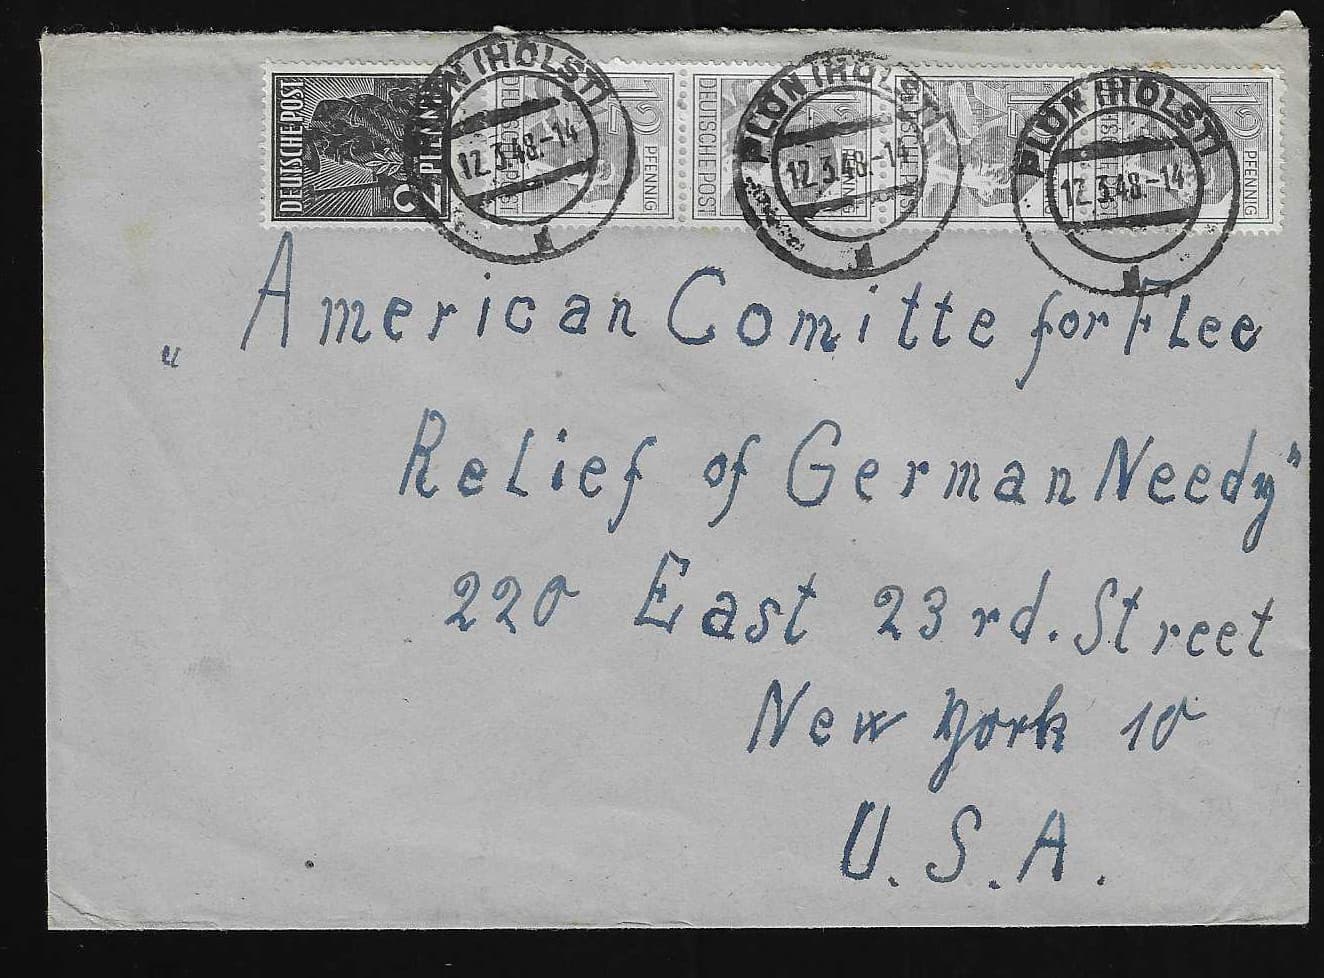 DEUTSCHE POST 2 PFENNIG
DEUTSCHE POST 12 PFENNIG
DEUTSCHE POST 12 PFENNIG
DEUTSCHE POST 12 PFENNIG
DEUTSCHE POST 12 PFENNIG
PLÖN (HOLST) 12.3.48.-14
PLÖN (HOLST) 12.3.48.-14
PLÖN (HOLST) 12.3.48.-14
„American Comitte for Flee
Relief of German Needy"
220 East 23rd. Street
New York 10
U. S. A.